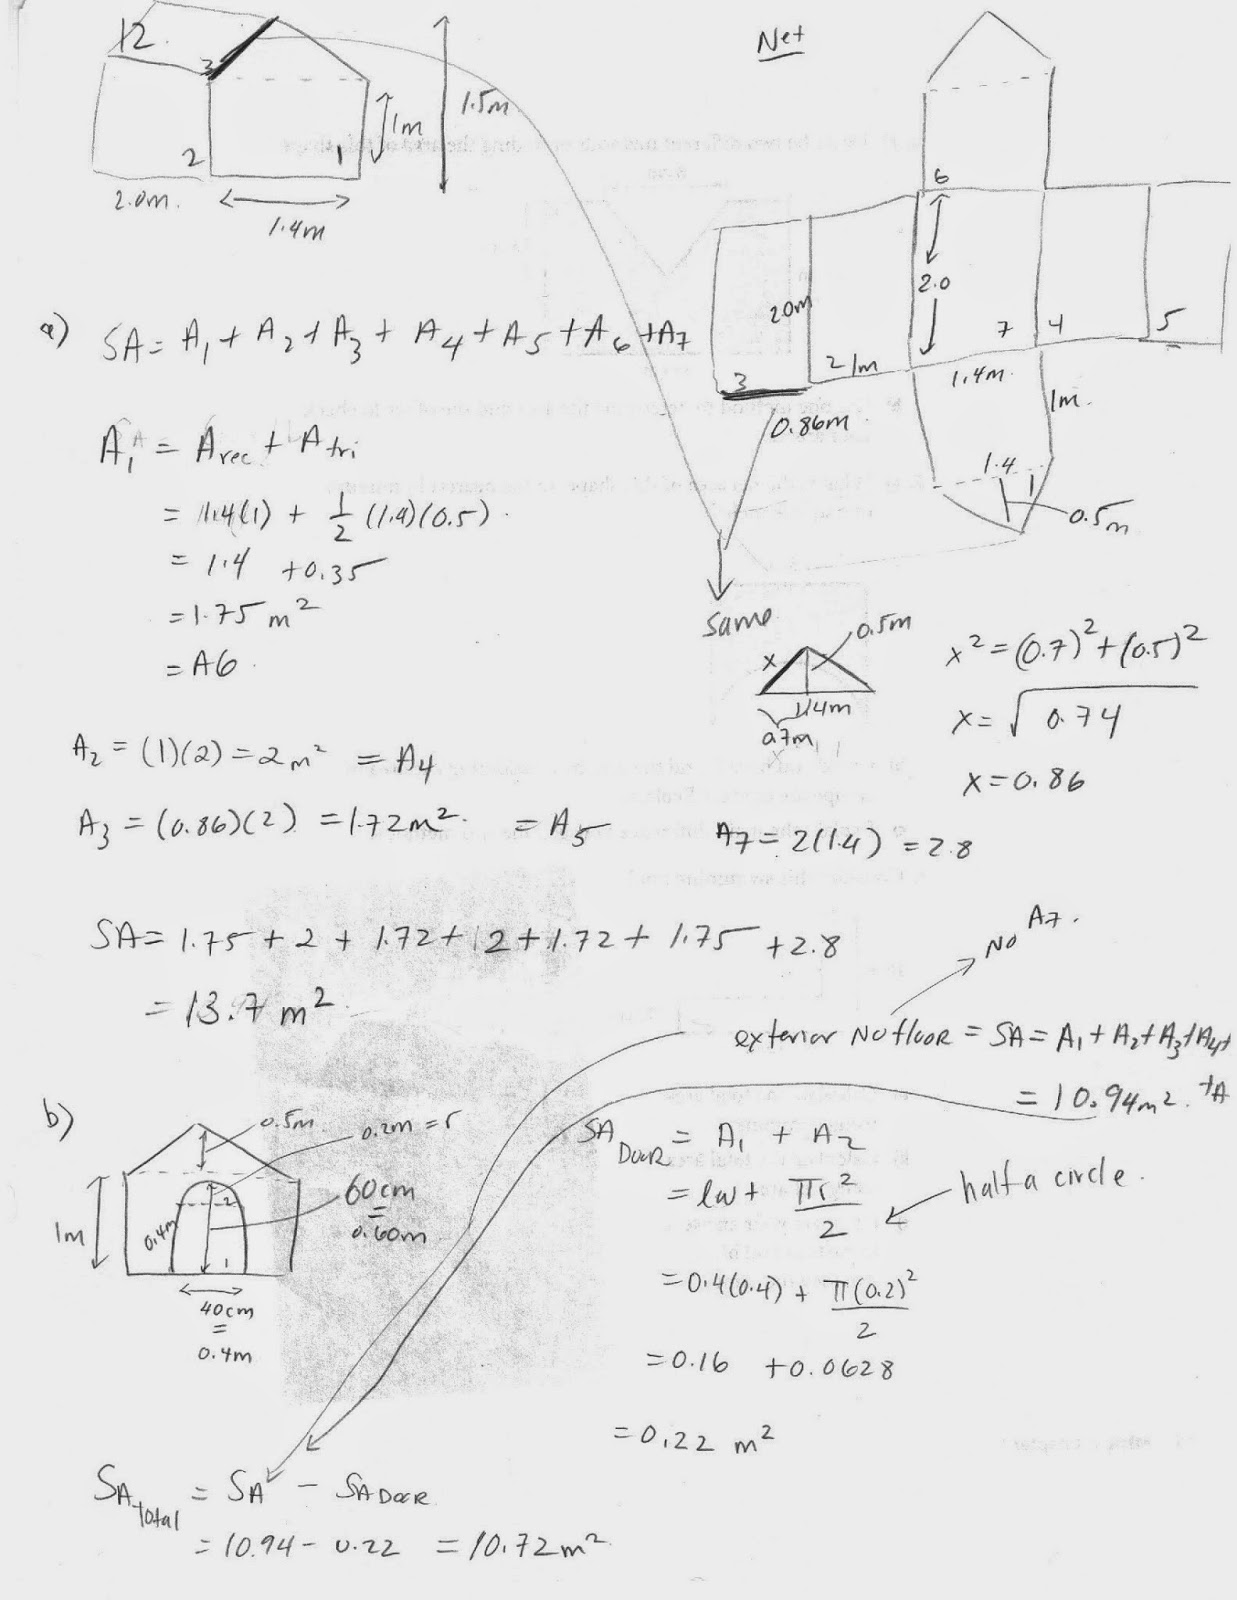 12
3
1.5m
1m
2
1
2.0m.
1.4m
Net
6
2.0m
2.0
7 4
5
3
2 1m
1.4m.
1m.
0.86m
1.4
1
0.5m
a) SA = A1 + A2 + A3 + A4 + A5 + A6 + A7
A1 = Arec + Atri
= 1.4(1) + 1/2 (1.4)(0.5)
= 1.4 + 0.35
= 1.75 m²
= A6
same
0.5m
x
1.4m
0.7m
x² = (0.7)² + (0.5)²
x = √0.74
x = 0.86
A2 = (1)(2) = 2m² = A4
A3 = (0.86)(2) = 1.72m² = A5
A7 = 2(1.4) = 2.8
SA = 1.75 + 2 + 1.72 + 2 + 1.72 + 1.75 + 2.8
= 13.7 m²
No A7.
exterior No floor = SA = A1 + A2 + A3 + A4 +
= 10.94m². +A
b)
0.5m
0.2m = r
60cm
=
0.60m
1m
0.4m
2
1
40cm
=
0.4m
SA Door = A1 + A2
= lw + πr²/2
half a circle.
= 0.4(0.4) + π(0.2)²/2
= 0.16 + 0.0628
= 0.22 m²
SA total = SA - SA Door
= 10.94 - 0.22 = 10.72m²